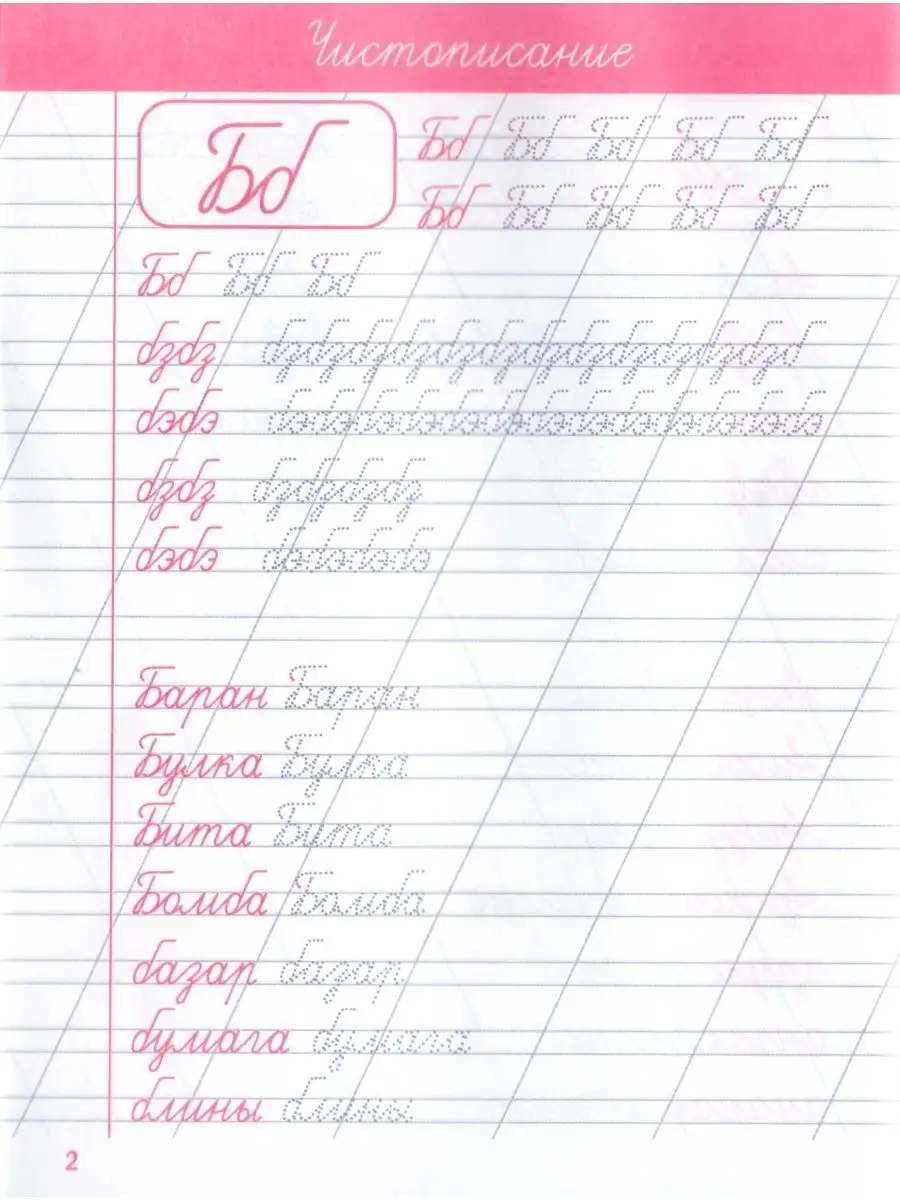 Чистописание
Бб
Бб Бб Бб Бб Бб
Бб Бб Бб Бб Бб
Бб Бб Бб
бзбз бзбзбзбзбзбзбзбзбзбзбзбзб
бэбэ бэбэбэбэбэбэбэбэбэбэбэбэ
бзбз бзбзбзбз
бэбэ бэбэбэбэ
Баран Баран
Булка Булка
Бита Бита
Бомба Бомба
базар базар
бумага бумага
блины блины
2